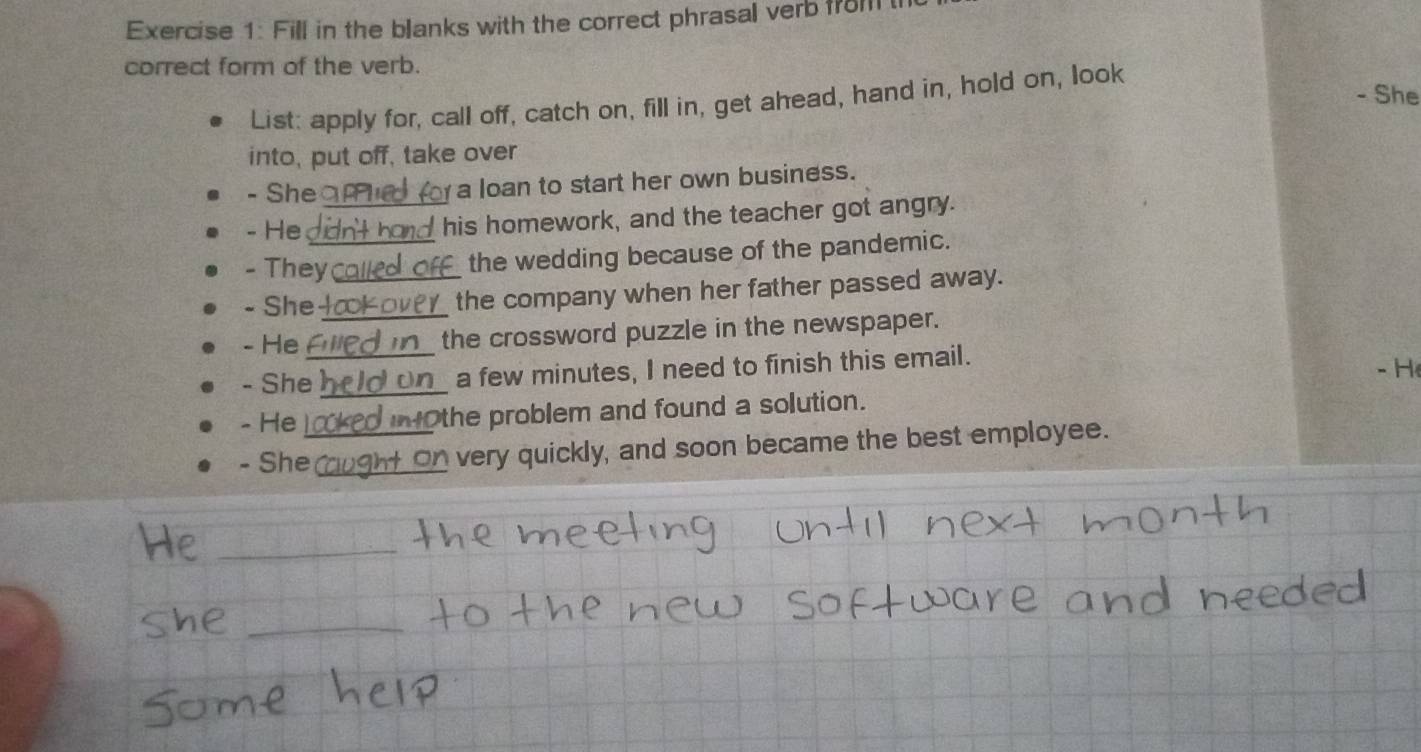 Exercise 1: Fill in the blanks with the correct phrasal verb from
correct form of the verb.
• List: apply for, call off, catch on, fill in, get ahead, hand in, hold on, look
into, put off, take over
• - She applied for a loan to start her own business.
• - He didn't hand his homework, and the teacher got angry.
• - They called off the wedding because of the pandemic.
• - She took over the company when her father passed away.
• - He filled in the crossword puzzle in the newspaper.
• - She held on a few minutes, I need to finish this email.
• - He looked into the problem and found a solution.
• - She caught on very quickly, and soon became the best employee.
- She
- He
He ______ the meeting until next month
she ______ to the new software and needed
some help